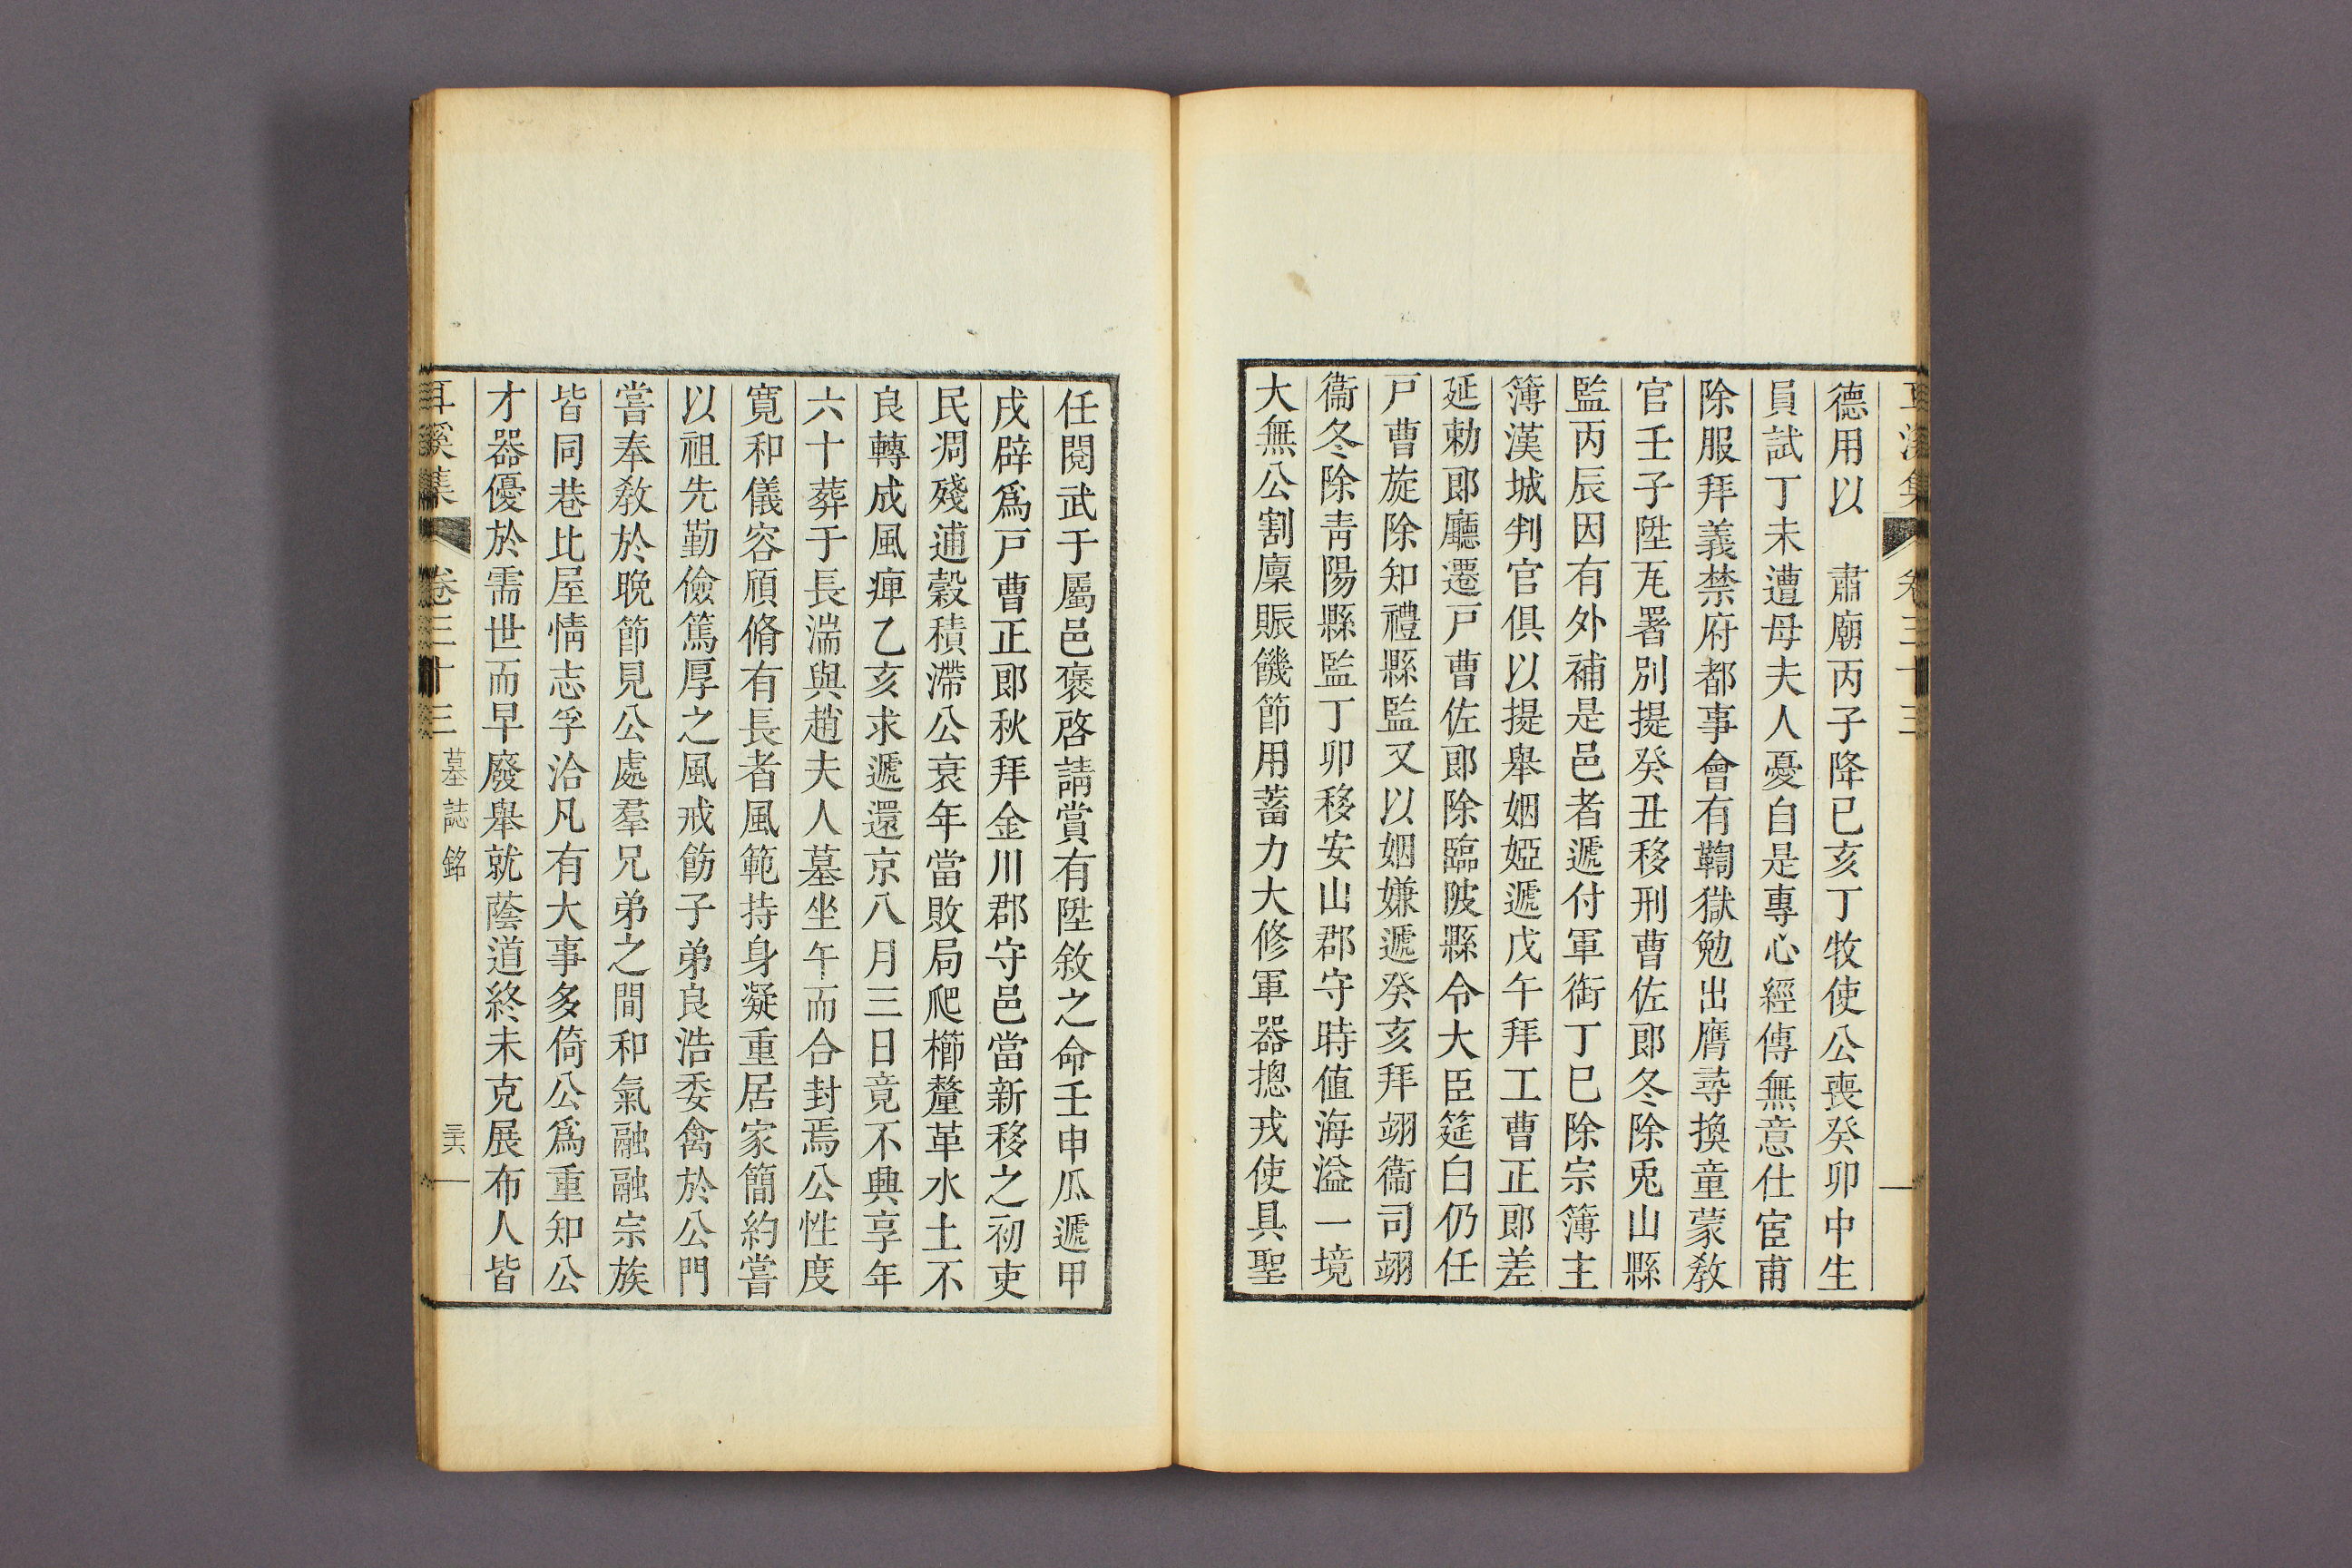 耳溪集 卷三十三
德用以 肅廟丙子降已亥丁牧使公喪癸卯中生
員試丁未遭母夫人憂自是專心經傳無意仕宦甫
除服拜義禁府都事會有鞫獄勉出膺尋換童蒙敎
官壬子陞瓦署別提癸丑移刑曹佐郎冬除兎山縣
監丙辰因有外補是邑者遞付軍衘丁巳除宗簿主
簿漢城判官俱以提舉姻婭遞戊午拜工曹正郎差
延勅郎廳遷戸曹佐郎除臨陂縣令大臣筵白仍任
戸曹旋除知禮縣監又以姻嫌遞癸亥拜翊衞司翊
衞冬除青陽縣監丁卯移安山郡守時値海溢一境
大無公割廩賑饑節用蓄力大修軍器摠戎使具聖
任閱武于屬邑褒啓請賞有陞敘之命壬申瓜遞甲
戌辟爲戸曹正郎秋拜金川郡守邑當新移之初吏
民凋殘逋穀積滯公衰年當敗局爬櫛釐革水土不
良轉成風痺乙亥求遞還京八月三日竟不典享年
六十葬于長湍與趙夫人墓坐午而合封焉公性度
寛和儀容頎脩有長者風範持身凝重居家簡約嘗
以祖先勤儉篤厚之風戒飭子弟良浩委禽於公門
嘗奉敎於晩節見公處羣兄弟之間和氣融融宗族
皆同巷比屋情志孚洽凡有大事多倚公爲重知公
才器優於需世而早廢舉就蔭道終未克展布人皆
耳溪集 卷三十三 墓誌銘 三六